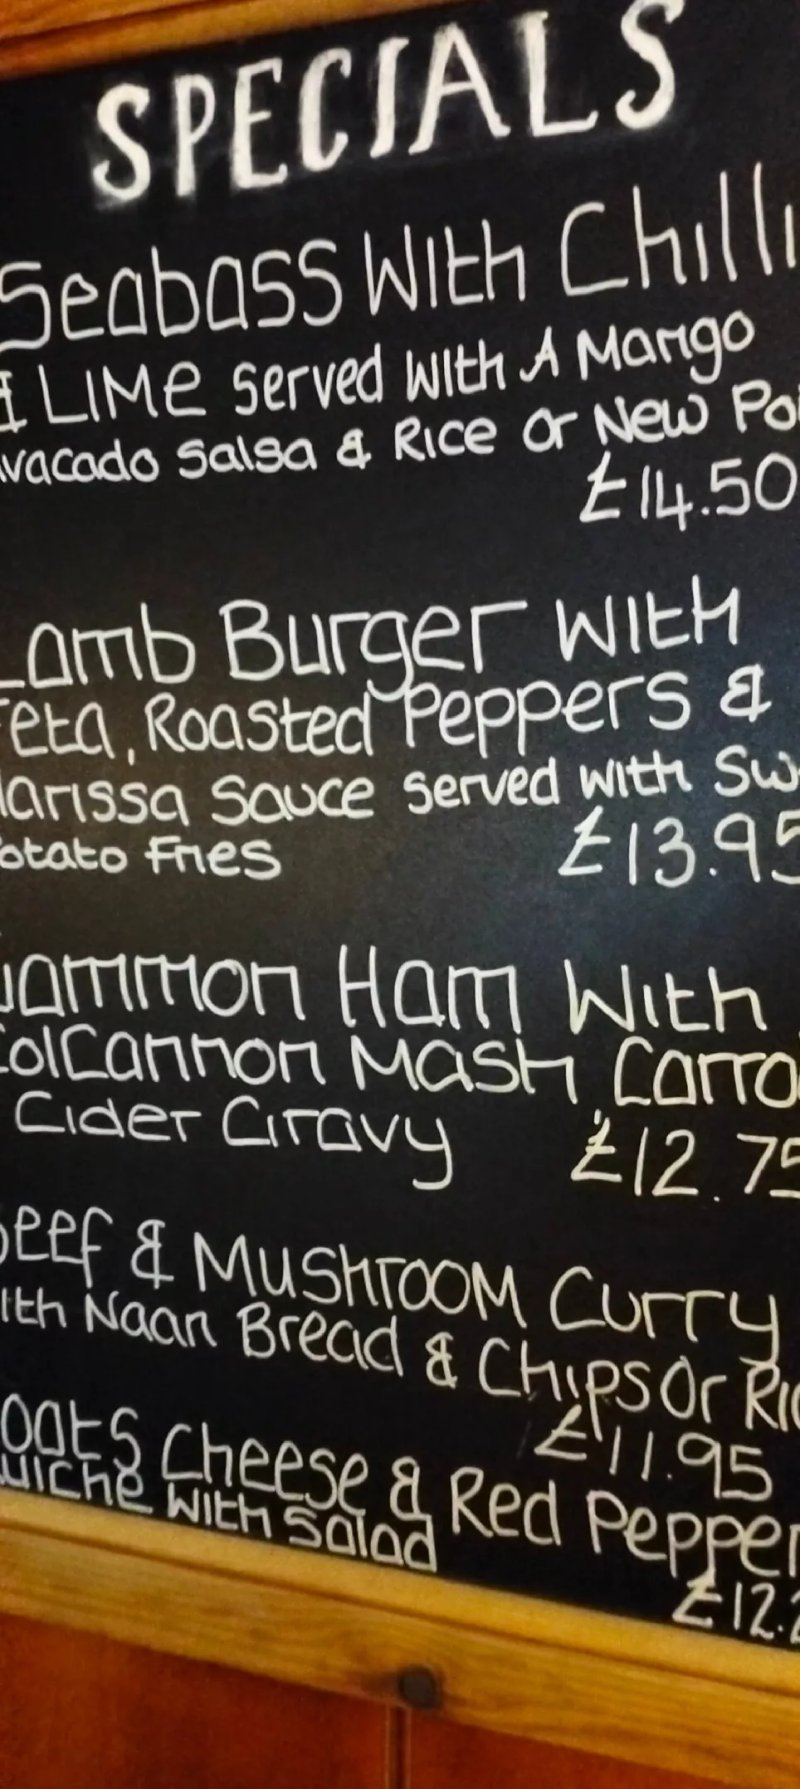 SPECIALS
Seabass With Chilli
& LIME served with A Mango
vacado Salsa & Rice or New Po
£14.50
Lamb Burger with
eta, Roasted Peppers &
arissa Sauce served with Sw
otato fries £13.95
ammon Ham With
ColCannon Mash Carro
Cider Gravy £12.75
eef & Mushroom Curry
ith Naan Bread & Chips Or Ric
£11.95
oats Cheese & Red Pepper
uiche with Salad
£12.2